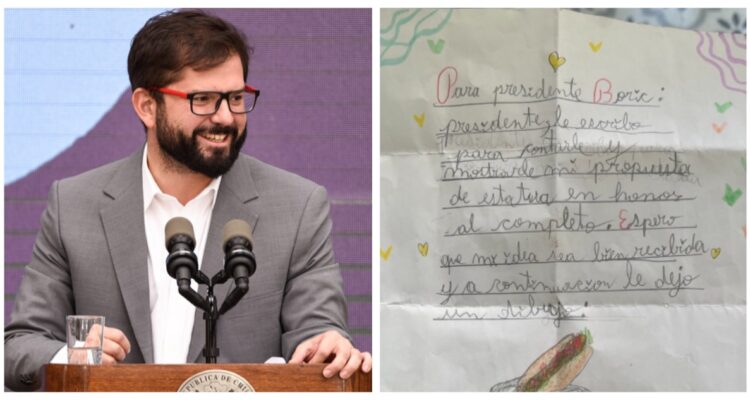 REPUBLICA DE CHILE
Para presidente Boric:
presidente, le escribo
para contarle y
mostrarle mi propuesta
de estatua en honor
al completo. Espero
que mi idea sea bien recibida
y a continuacion le dejo
un dibujo: